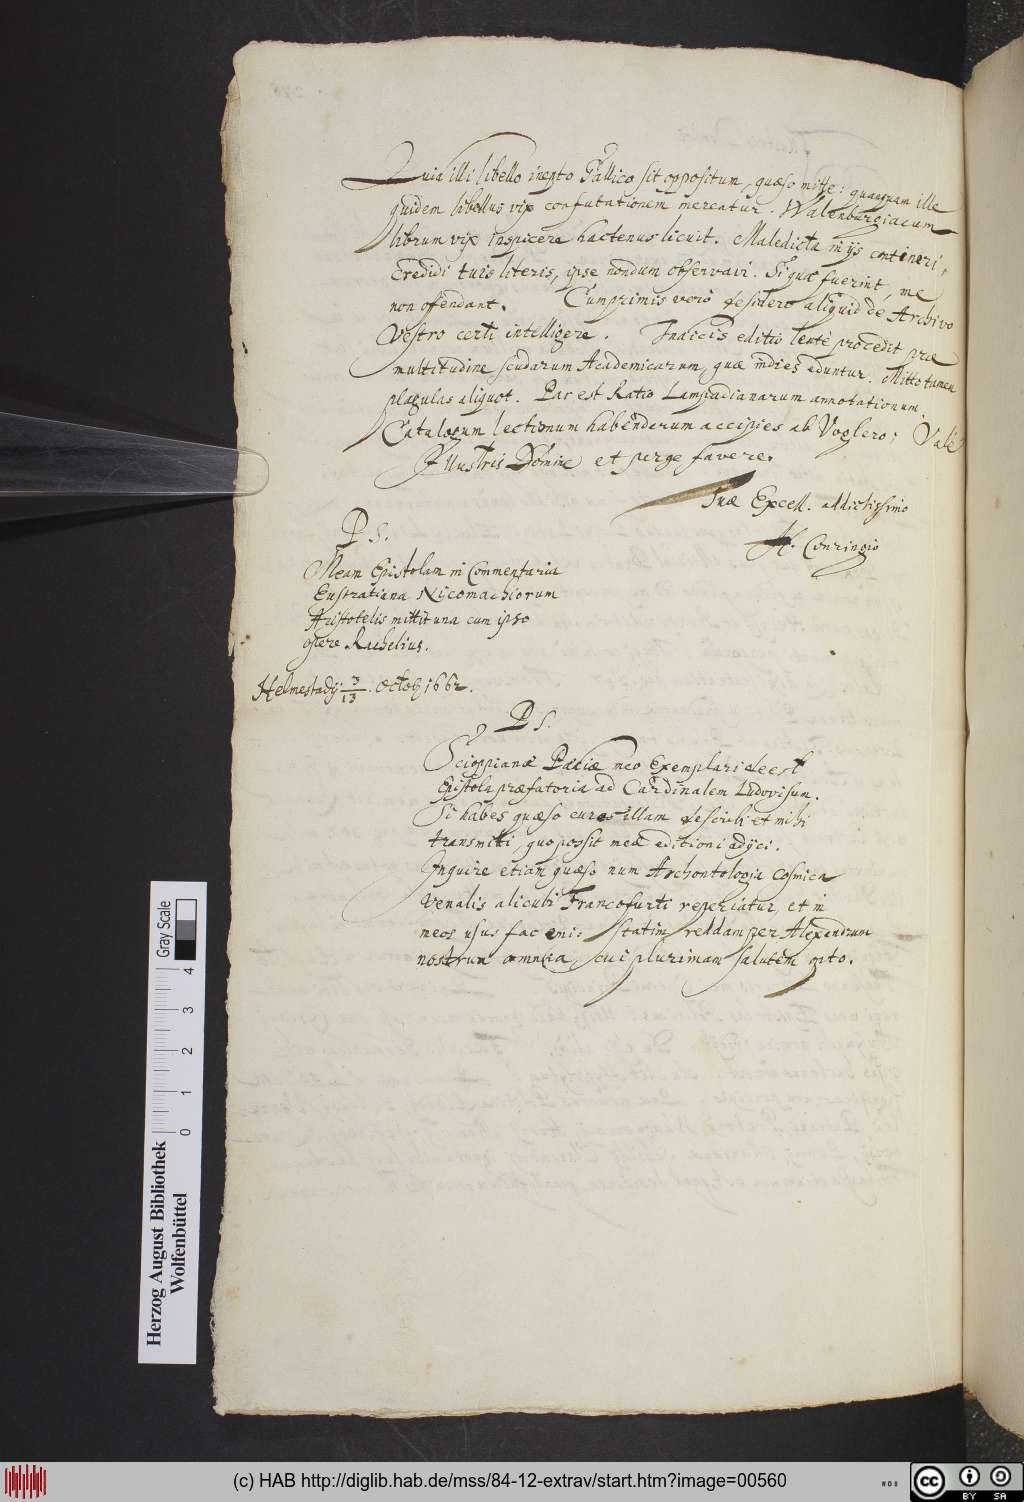 Quia illi libello inepto Gallico sit oppositum, quæso mitte: quamquam ille
quidem libellus vix confutationem mereatur. Walenburgiacum
librum vix inspicere hactenus licuit. Maledicta in ijs contineri,
credidi tuis literis, ipse nondum observavi. Si quæ fuerint, me
non offendant. Cumprimis vero desidero aliquid de Archivo
Vestro certi intelligere. Indicis editio lentè procedit præ
multitudine scudarum Academicarum, quæ indies eduntur. Mitto tamen
plagulas aliquot. Par est Ratio Lampadianarum annotationum.
Catalogum lectionum habendarum accipies ab Voglero; Vale
Illustris Domine et perge favere.
Tuæ Excell. addictissimo
H. Conringio
P S.
Meam Epistolam in Commentaria
Eustratiana Nicomachiorum
Aristotelis mittit una cum ipso
opere Rachelius.
Helmestadij 3/13 Octob 1662.
P S.
Scioppianæ Pædiæ meo Exemplari deest
Epistola præfatoria ad Cardinalem Ludovisum.
Si habes quæso cures illam describi et mihi
transmitti, quo possit meæ editioni adijci.
Inquire etiam quæso num Archontologia Cosmica
venalis alicubi Francofurti reperiatur, et in
meos usus fac emi: statim reddam per Alexandrum
nostrum omnia, cui plurimam salutem opto.
Herzog August Bibliothek
Wolfenbüttel
0 1 2 3 4
Gray Scale
(c) HAB http://diglib.hab.de/mss/84-12-extrav/start.htm?image=00560
WDB
cc BY SA